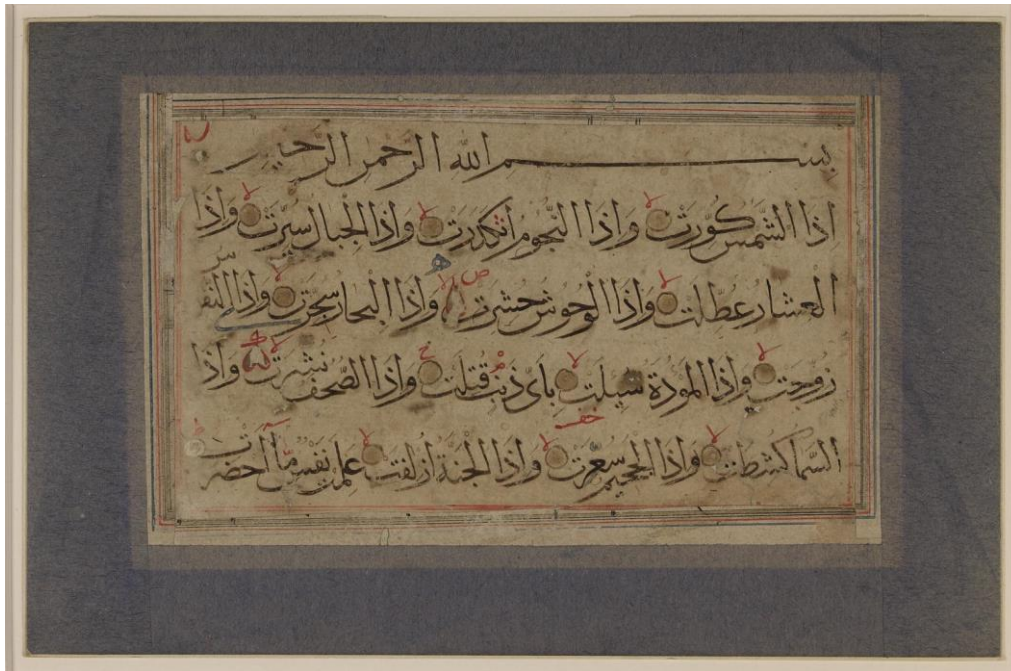 بسم الله الرحمن الرحيم
اذا الشمس كورت واذا النجوم انكدرت واذا الجبال سيرت واذا
العشار عطلت واذا الوحوش حشرت واذا البحار سجرت واذا النفو س
زوجت واذا الموءدة سئلت باى ذنب قتلت واذا الصحف نشرت واذا
السما كشطت واذا الجحيم سعرت واذا الجنة ازلفت علمت نفس ما احضرت